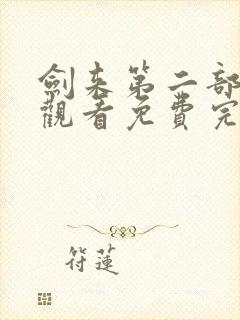 劍来第二部
觀看免費完
符蓮